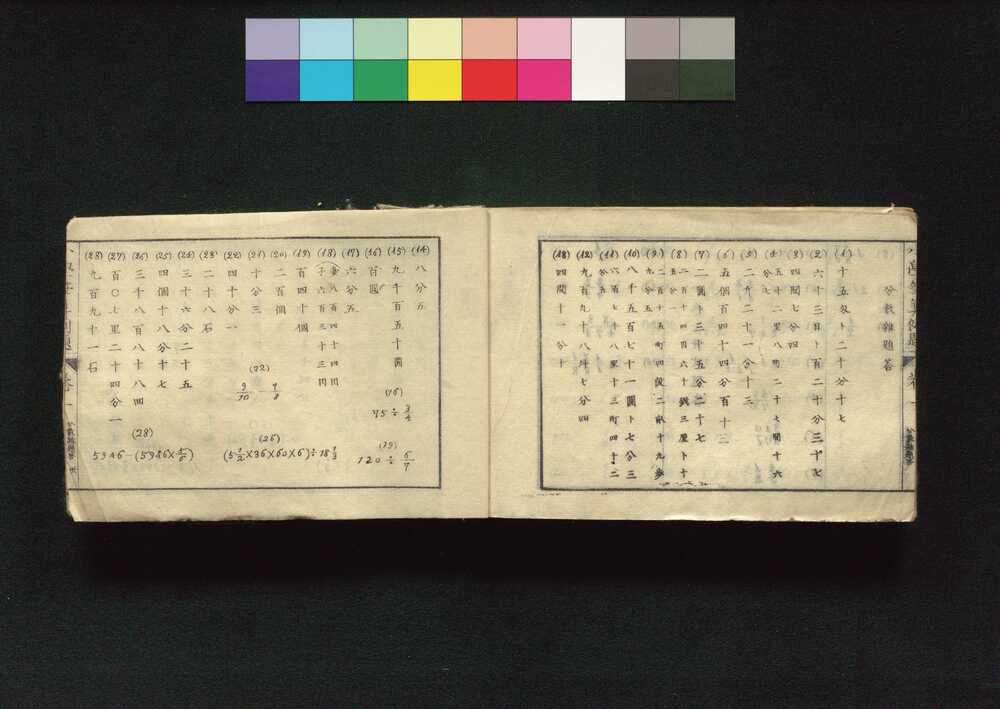 分數雜題答
(1) 十五匁ト二十分十七
(2) 六十三日ト百二十分三十七
(3) 四間七分四
(4) 五十二里八町二十七間十六分七
(5) 二升二十一分十三
(6) 五個百四十四分百十三
(7) 二圓ト三十五分二十七
(9) 二百十五町四段二畝十九歩九分五
(10) 八千五百七十一圓ト七分三
(11) 六百七十八里十三町四十二
(12) 九百九十八斗七分四
(13) 四間十一分十
(14) 八分五
(15) 九千百五十圓
(16) 百圓
(17) 六分五
(18)
(19) 百四十個
(20) 二百個
(21) 十分三
(22) 四十分一
(23) 二十八石
(24) 三十六分二十五
(25) 四個十八分十七
(26) 三千八百八十八四
(27) 百〇七里二十四分一
(28) 九百九十一石
75÷3/4
(19)
120÷6/7
(22)
9/10-7/8
(26)
(5 1/2×36×60×6)÷18 1/3
(28)
5946-(5946×5/6)